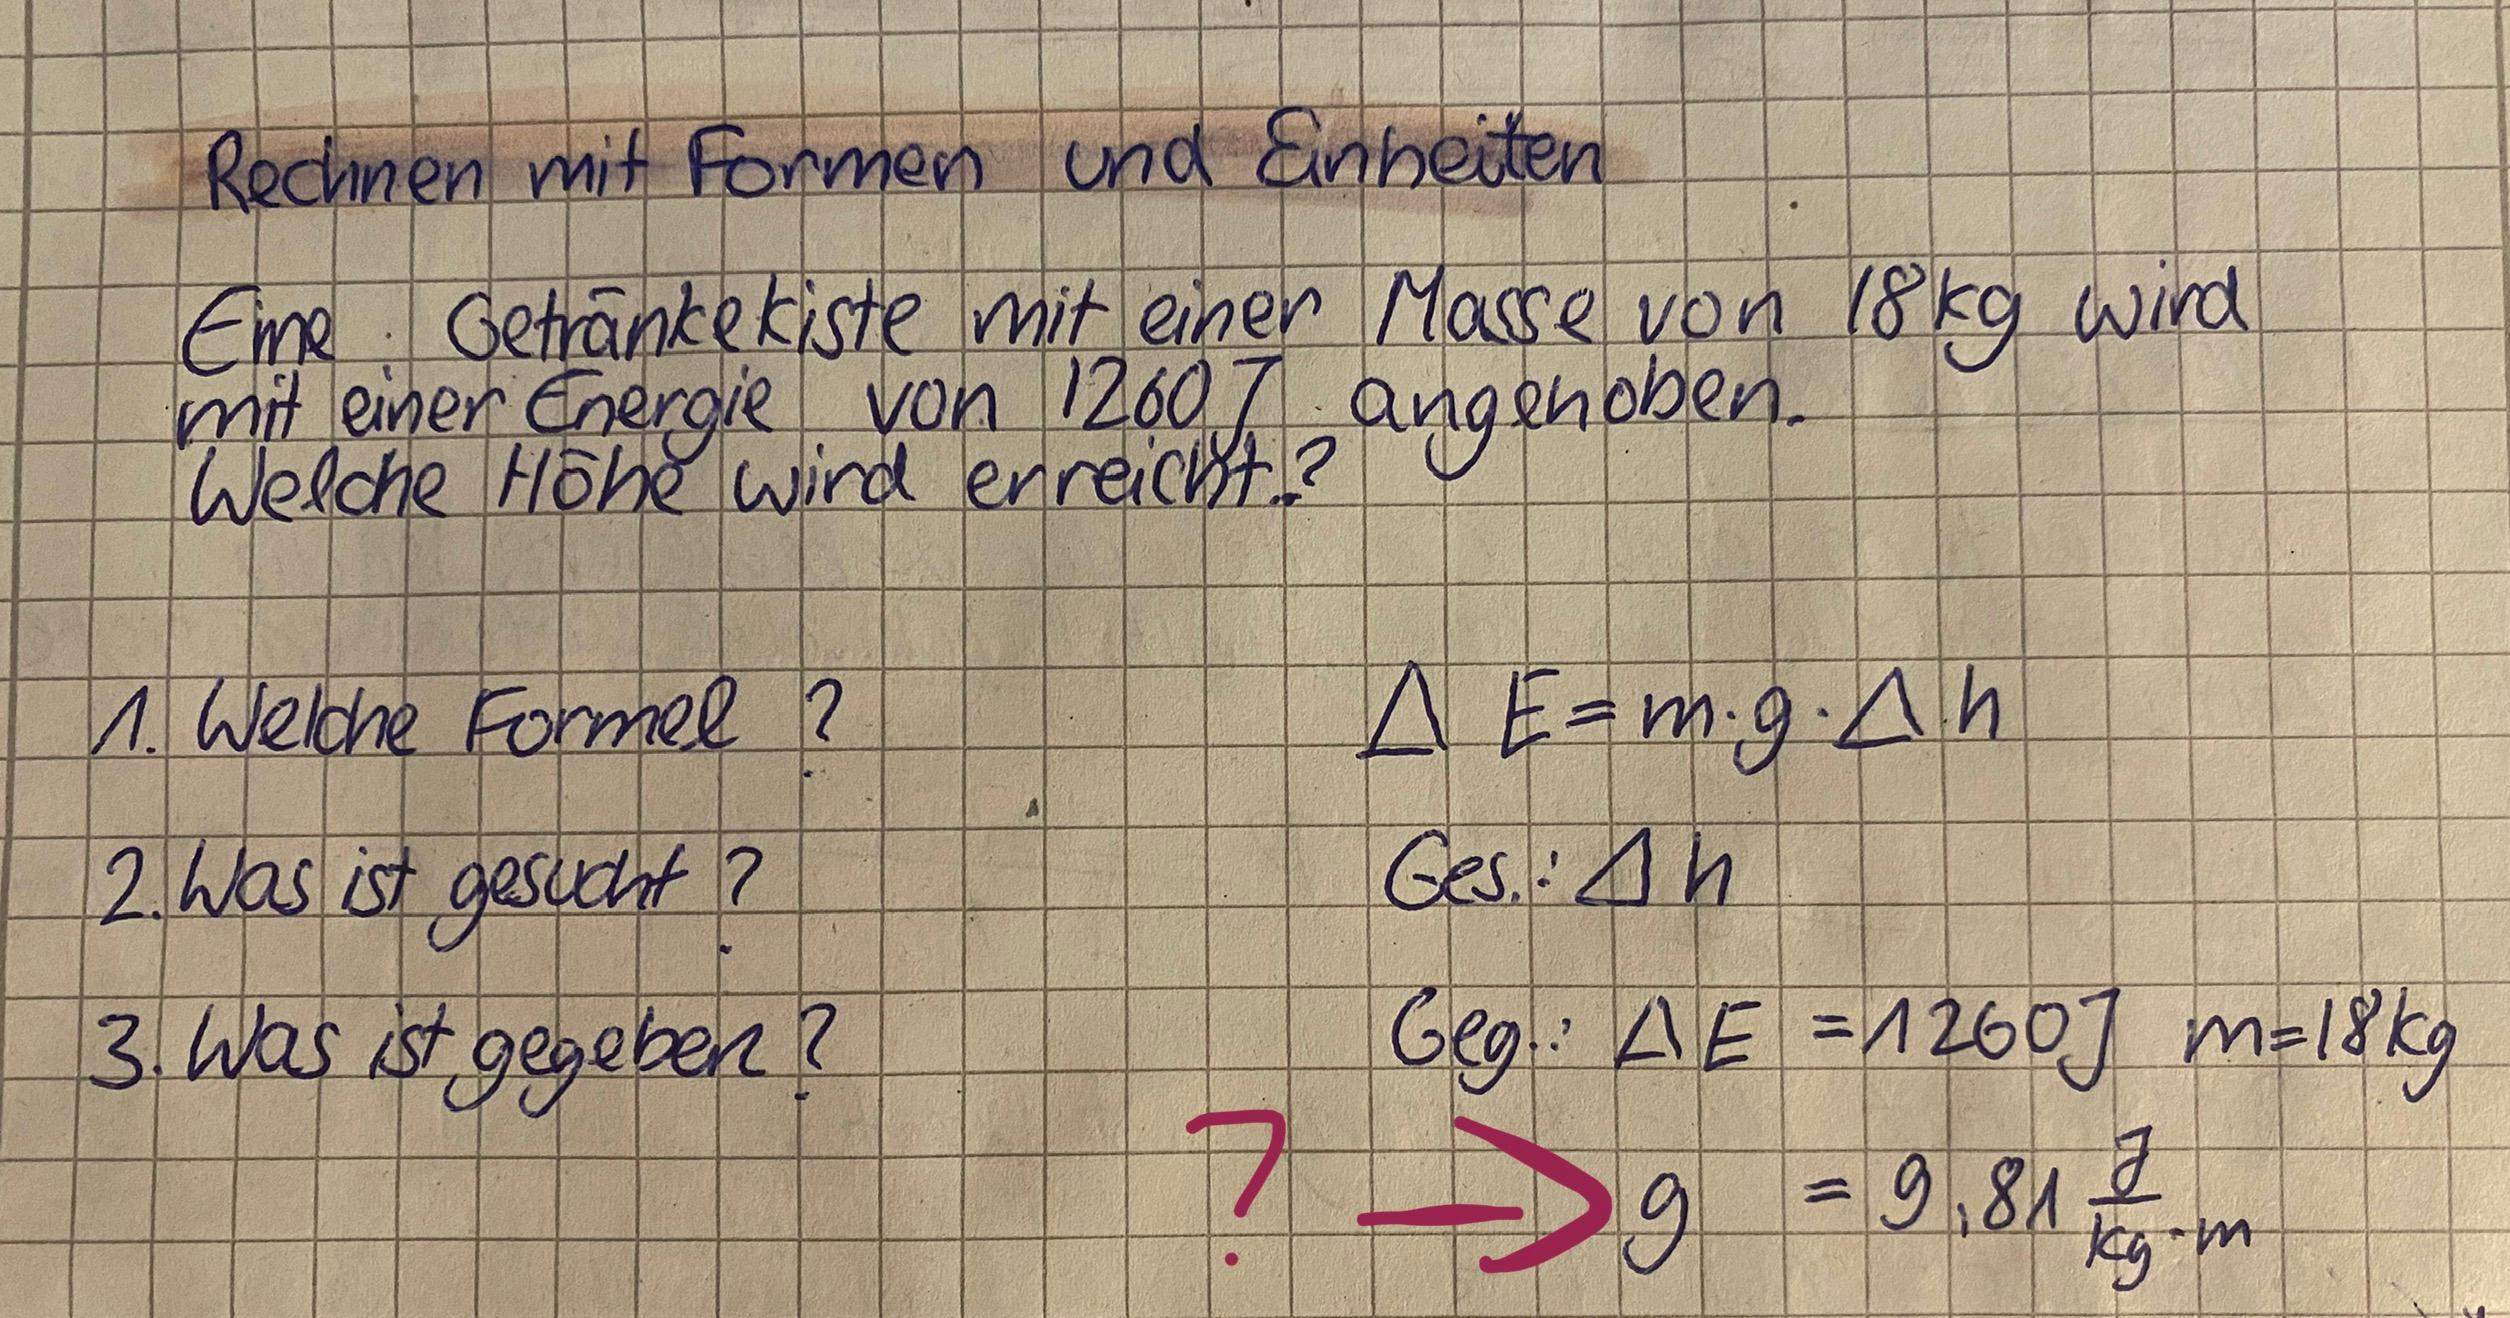 Rechnen mit Formen und Einheiten
Eine Getränkekiste mit einer Masse von 18kg wird
mit einer Energie von 1260J angehoben.
Welche Höhe wird erreicht.?
1. Welche Formel ? Δ E = m·g·Δ h
2. Was ist gesucht ? Ges.: Δ h
3. Was ist gegeben ? Geg.: Δ E = 1260J m=18kg
? → g = 9,81 J/kg·m